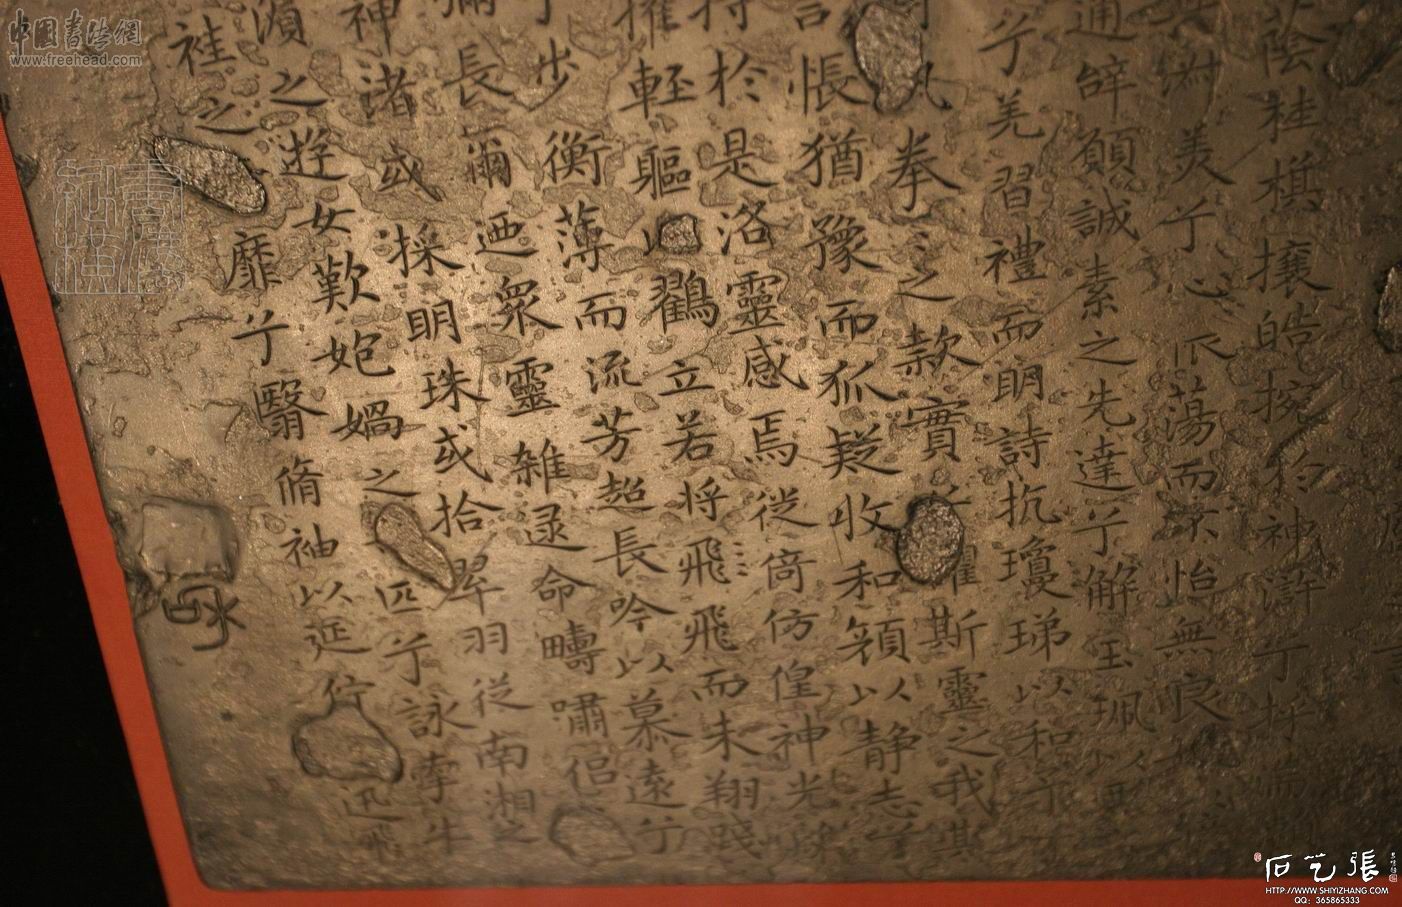 蔭桂棋攘皓捥於神滸兮採湍
其淑美兮心振蕩而不怡無良
通辞願誠素之先達兮解玉珮以要
兮羌習禮而明詩抗瓊珶以和予兮
拳〻之款實兮懼斯靈之我欺
言悵猶豫而狐疑收和顏以静志兮
持於是洛靈感焉徙倚仿偟神光離
擢輊軀以鶴立若将飛飛而未翔踐
步衡薄而流芳超長吟以慕遠兮
彌長爾迺衆靈雜遝命疇嘯侣
神渚或採明珠或拾翠羽從南湘之
濱之遊女歎匏媧之匹兮詠牽牛
袿之靡兮翳脩袖以延佇迅飛
中国書法網
www.freehead.com
石艺張
HTTP://WWW.SHIYIZHANG.COM
QQ: 365865333